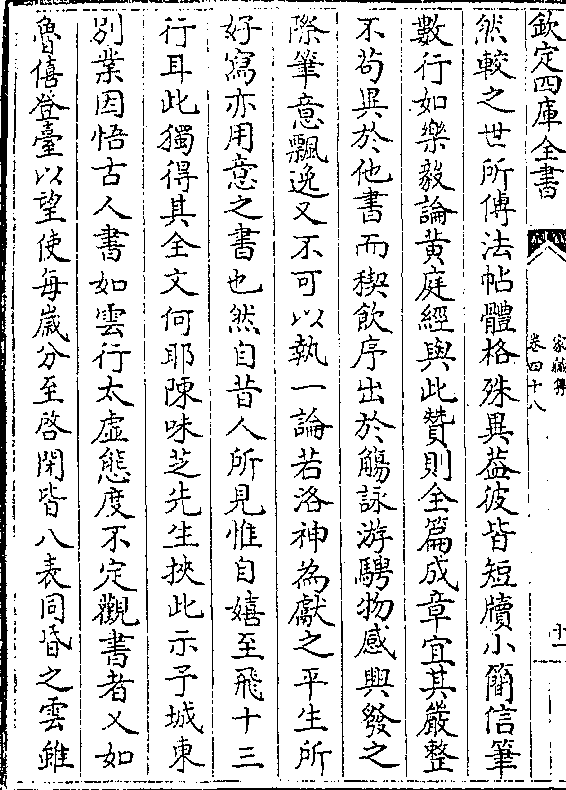 欽定四庫全書
家藏集
卷四十八
十一
然較之世所傳法帖體格殊異葢彼皆短牘小簡信筆
數行如樂毅論黄庭經與此賛則全篇成章宜其嚴整
不茍異於他書而稧飲序出於觴詠游騁物感興發之
際筆意飄逸又不可以執一論若洛神為獻之平生所
好寫亦用意之書也然自昔人所見惟自嬉至飛十三
行耳此獨得其全文何耶陳味芝先生挾此示予城東
别業因悟古人書如雲行太虚態度不定觀書者乂如
魯僖登臺以望使每嵗分至啓閉皆八表同昏之雲雖